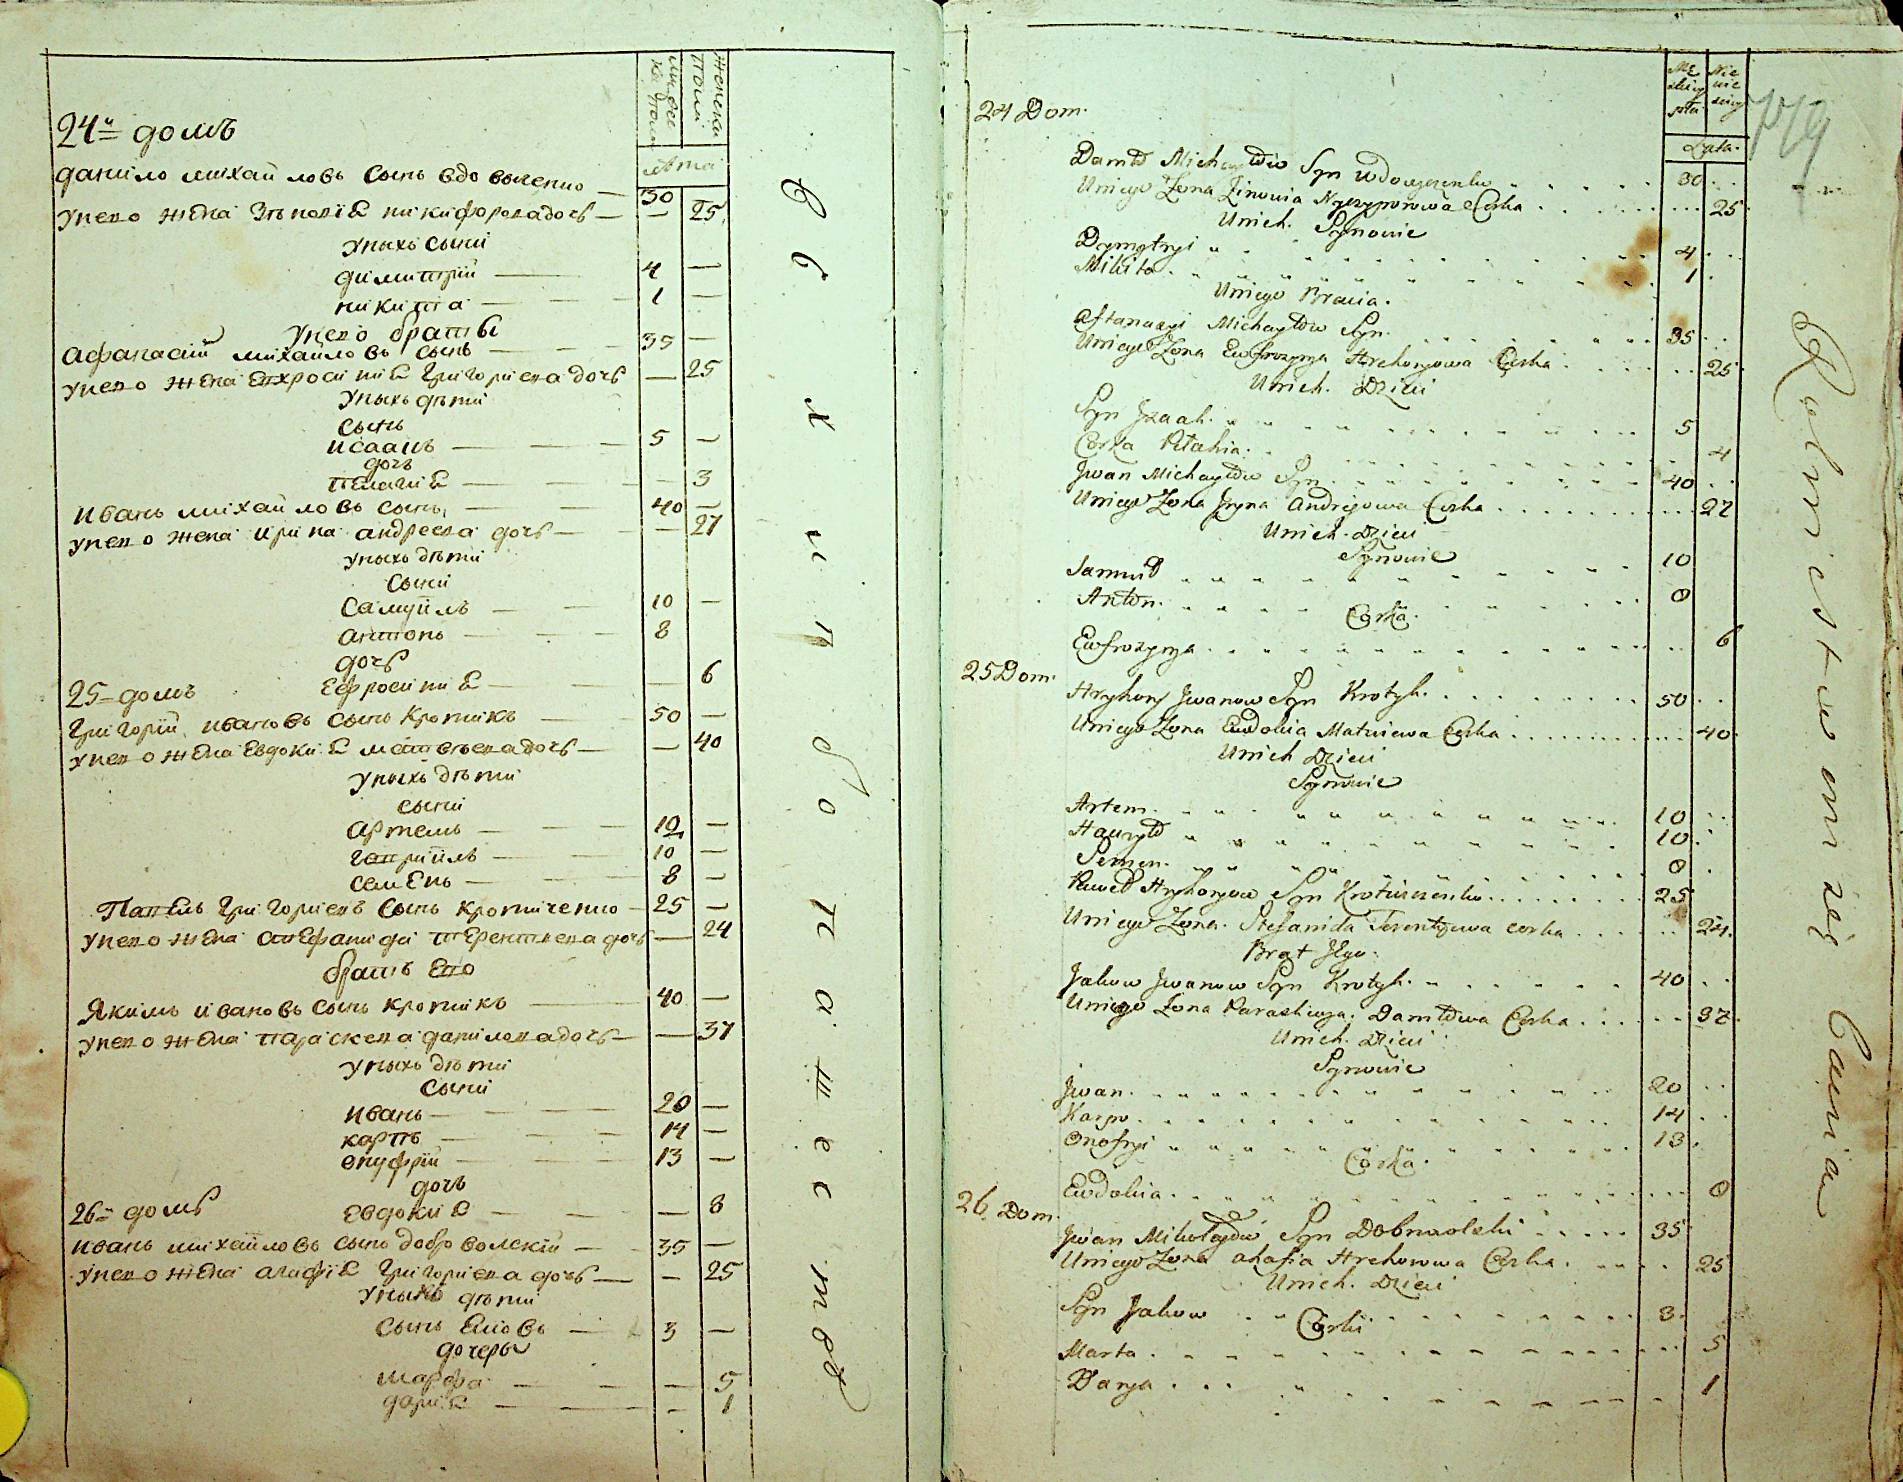 24й домъ
данило михайловъ сынъ вдовиченко — 30
унего жена зѣновія никифорова дочь — — 25
унихъ сыни
димитрій — 4 —
никита — 1 —
унего браты
афанасій михайловъ сынъ — 35 —
унего жена евхросинія григориева дочь — 25
унихъ дѣти
сынъ
исаакъ — 5 —
дочь
пелагія — — 3
иванъ михайловъ сынъ — 40 —
унего жена ирина андреева дочь — — 27
унихъ дѣти
сыни
самуйлъ — 10 —
антонъ — 8
дочь
ефросинія — — 6
25 домъ
григорій ивановъ сынъ кротикъ — 50 —
унего жена евдокия матвѣева дочь — — 40
унихъ дѣти
сыни
артемъ — 10 —
гавриилъ — 10 —
семенъ — 8 —
павелъ григориевъ сынъ кротиченко — 25 —
унего жена стефанида терентиева дочь — 24
братъ его
якимъ ивановъ сынъ кротикъ — 40 —
унего жена параскева данилова дочь — — 37
унихъ дѣти
сыни
иванъ — 20 —
карпъ — 14 —
онуфрій — 13 —
дочь
евдокия — — 8
26 домъ
иванъ михайловъ сынъ доброволскій — 35 —
унего жена агафія григориева дочь — — 25
унихъ дѣти
сынъ яковъ — 3 —
дочеры
марфа — — 5
дария — — 1
24 Dom.
Lata.
Daniło Michayłow Syn Wdowyczenko 30
Uniego Zona Zinowia Nyczyporowa Corka 25
Unich. Synowie
Dymytryi 4
Mikita 1
Uniego Bracia.
Aftanazyi Michayłow Syn. 35
Uniego Zona Ewfrozyna Hrehorjowa Corka 25
Unich. Dzieci
Syn Jzaak. 5
Corka Pełahia. 4
Jwan Michayłow Syn 40
Uniego Zona Jryna Andrejowa Corka 27
Unich. Dzieci
Synowie
Samuił 10
Anton. 8
Corka.
Ewfrozyna 6
25 Dom.
Hryhory Jwanow Syn Krotyk. 50
Uniego Zona Ewdokia Matwiewa Corka 40
Unich Dzieci
Synowie
Artem. 10
Hauryło 10
Semen. 8
Paweł Hryhorjow Syn Kroticzenko 25
Uniego Zona. Stefanida Terentyewa corka 24.
Brat Jego.
Jakow Jwanow Syn Krotyk. 40
Uniego Zona Paraskiwya. Daniłowa Corka 37
Unich. Dzieci
Synowie
Jwan. 20
Karpo 14
Onofryi 13
Corka.
Ewdokia. 8
26 Dom.
Jwan Mikołajow Syn Dobrwolski 35
Uniego Zona ahafia Hrehorowa Corka. 25
Unich. Dzieci
Syn Jakow 3.
Corki
Marta 5
Darya 1